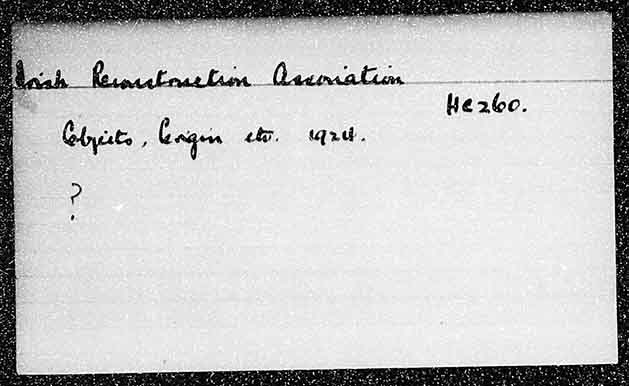 Irish Reconstruction Association
HC 260.
Objects, Origin etc. 1924.
?